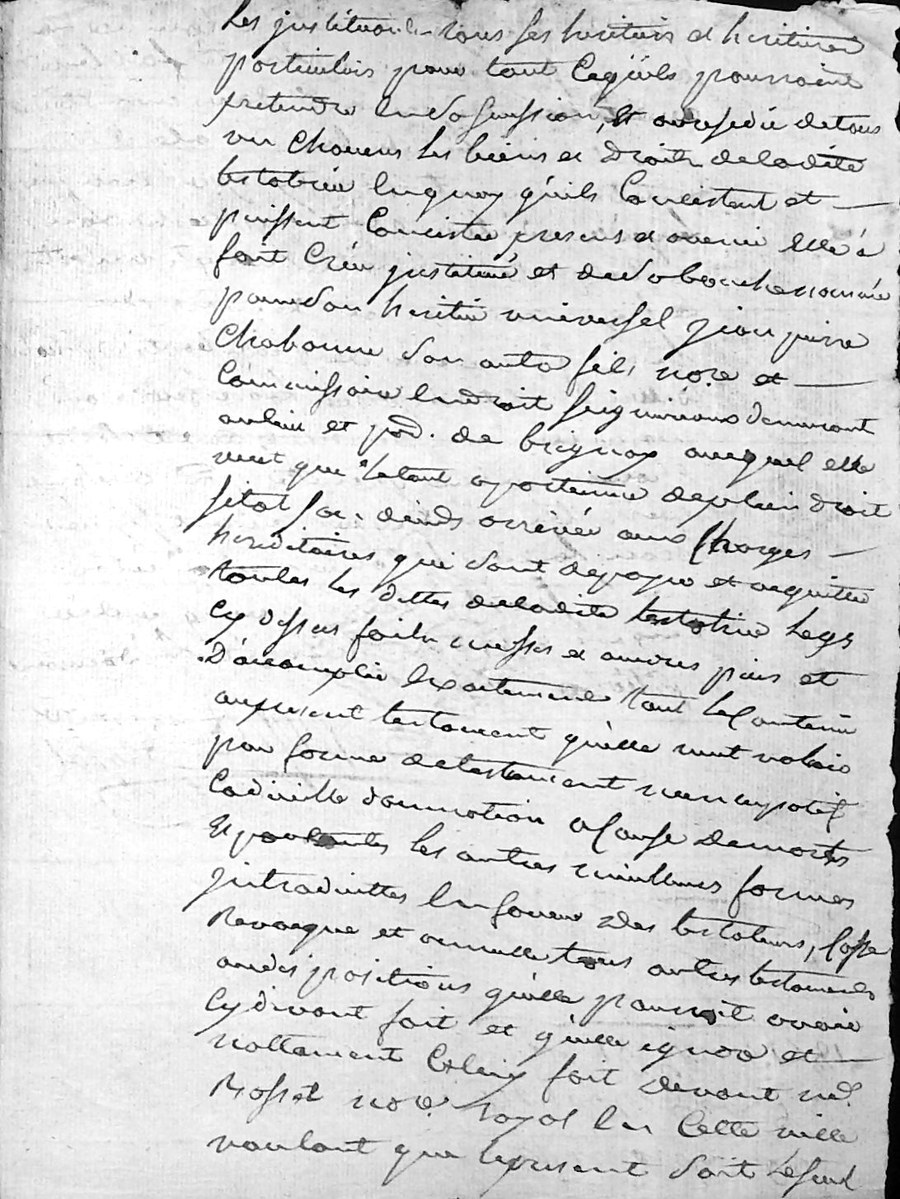 Les jnstituant tous ses heritiers et heritieres
particuliers pour tout cequ'ils pourroint
pretendre en sa succession, Et auresidu detous
un chacuns les biens et droits deladite
testatrice enquoy qu'ils consistent et
puissent consister presens et avenir elle a
fait creé jnstitué et desabouche nommée
pourson heritier universel jean pierre
Chabanne son autre fils no.re et
Commissaire endroit seigneuriaux demeurant
aulieu et p.sse de brignox auequel elle
veut que letout apartienne deplein droit
sitot son deceds arrivée aux Charges
hereditaires qui sont depayer et acquitter
toutes les dettes deladite testatrice Legs
cy dessus faits messes et œuvres pies et
D'accomplir Exactement tout lecontenu
aupresent testament qu'elle veut valoir
par forme detestament noncupatif
codicille donnation acause demorts
Et partoutes les autres meilleures formes
jntroduittes En faveur des testateurs, Casse
Revoque et annulle tous autres testaments
oudispositions qu'elle pourroit avoir
cy devant fait et qu'elle et
nottament Celuy fait devant m.e
Rosset no.re Royal En Cette ville
voulant que lepresent soit Leseul